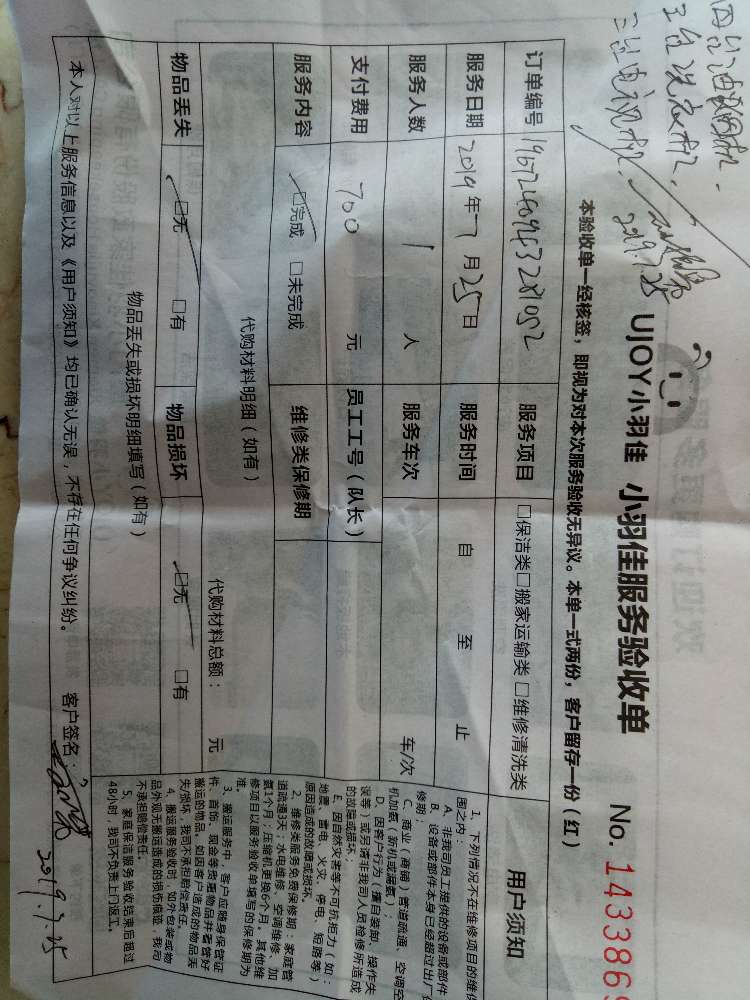 四台油烟机.
三台洗衣机.
三台电视机.
2019.7.25
UJOY小羽佳 小羽佳服务验收单 No. 1433869
本验收单一经核签，即视为对本次服务验收无异议。本单一式两份，客户留存一份（红）
订单编号 服务项目 □保洁类□搬家运输类□维修清洗类 用户须知
服务日期 2019年7月25日 服务时间 自 至 止
服务人数 1 人 服务车次 车/次
支付费用 700 元 员工工号（队长）
服务内容 □完成 □未完成 维修类保修期
代购材料明细（如有） 代购材料总额： 元
物品丢失 □无 □有 物品损坏 □无 □有
物品丢失或损坏明细填写（如有）
本人对以上服务信息以及《用户须知》均已确认无误，不存在任何争议纠纷。 客户签名：
2019.7.25
1、下列情况不在维修项目的维保
围之内：
A、非我司员工提供的设备或部件
B、设备或部件本身已经超过出厂保
修期；
C、商业（商铺）管道疏通、空调空
机加氨（新机或漏氨）；
D、因客户行为（擅自装卸、操作失
误等）或另请非我司人员检修所造成
的故障或损坏；
E、因自然灾害等不可抗拒力（如：
地震、雷电、火灾、停电、短路等）
原因造成的故障或损坏。
2、维修类服务免费保修期：家庭管
道疏通3天；水电维修、空调维修、加
氨1个月；压缩机更换6个月。其他维
修项目以服务验收单填写的保修期为
准。
3、搬运服务中，客户应随身保管证
件、首饰、现金等贵重物品并看管好
搬运的物品，如因客户造成的物品丢
失/损坏，我司不承担赔偿责任。
4、搬运服务验收时，如外包装或物
品外观无搬运造成的损伤痕迹，我司
不承担赔偿责任。
5、家庭保洁服务验收结束后超过
48小时，我司不负责上门返工。